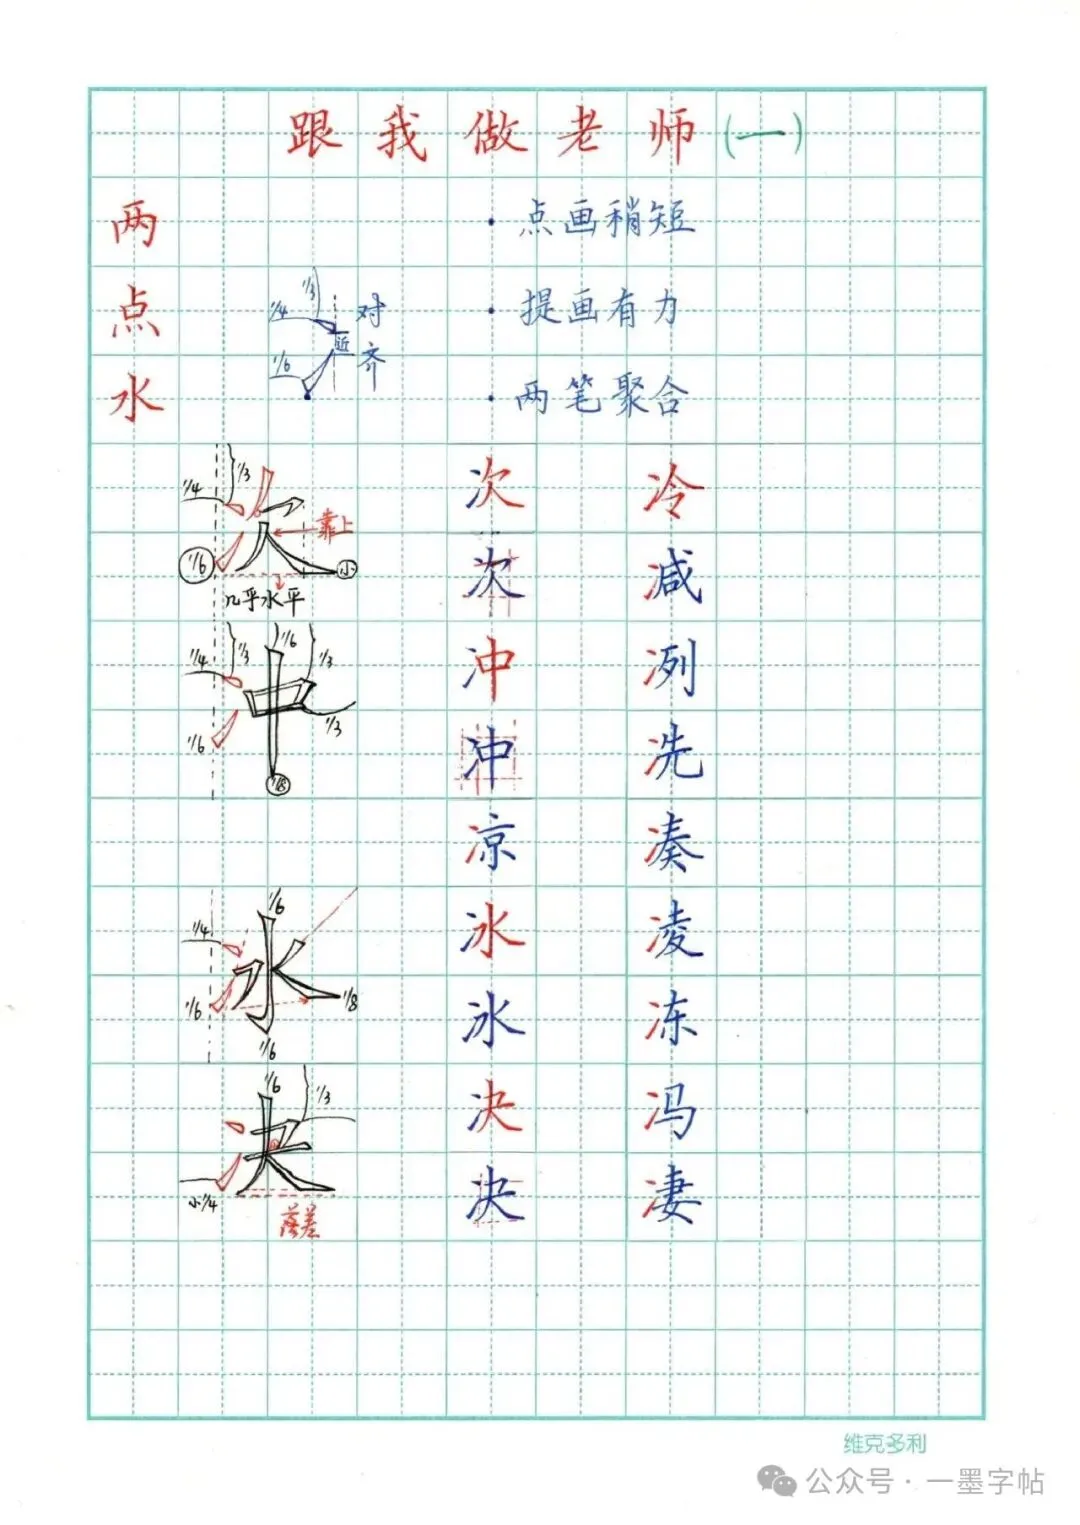 跟我做老师(一)
两点水
· 点画稍短
· 提画有力
· 两笔聚合
1/3
1/4
对齐
近
1/6
1/3
1/4
靠上
1/6
小
几乎水平
次 冷
次 减
1/6
1/4 1/3 1/3
1/3
1/6
1/8
冲 冽
冲 冼
凉 凑
1/6
1/4
1/6
1/8
1/6
冰 凌
冰 冻
1/6
1/3
小1/4
落差
决 冯
决 凄
维克多利
公众号·一墨字帖